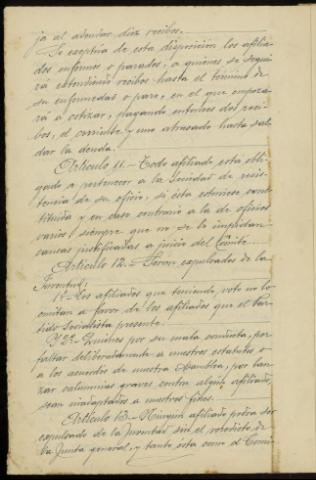 ja al adeudar diez recibos.
Se exceptúa de esta disposición los afilia-
dos enfermos o parados, a quienes se segui-
rá extendiendo recibos hasta el término de
su enfermedad o paro, en el que empeza-
rá á cotizar, pagando entonces dos reci-
bos, el corriente y uno atrasado hasta sal-
dar la deuda.
Artículo 11.- Todo afiliado está obli-
gado a pertenecer a la Sociedad de resis-
tencia de su oficio, si ésta estuviese cons-
tituida y en caso contrario a la de oficios
varios, siempre que no se lo impidan
causas justificadas a juicio del Comité.
Artículo 12.- Serán expulsados de la
Juventud:
1º- Los afiliados que teniendo voto no lo
emitan a favor de los afiliados que el Par-
tido Socialista presente.
Y 2º- Quienes por su mala conducta, por
faltar deliberadamente a nuestros estatutos o
a los acuerdos de nuestra Asamblea, por lan-
zar calumnias graves contra algún afiliado,
sean inadaptados a nuestros fines.
Artículo 13.- Ningún afiliado podrá ser
expulsado de la Juventud sin el veredicto de
la Junta general, y tanto ésta como el Comi-